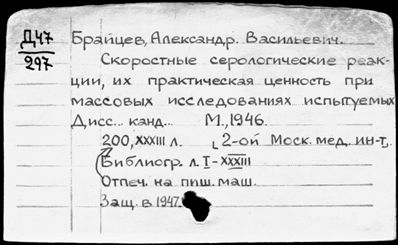 Д47
297
Брайцев, Александр. Васильевич.
Скоростные серологические реак-
ции, их практическая ценность при
массовых исследованиях испытуемых
Дисс... канд... М., 1946.
200, XXXIII л. 2-ой Моск. мед. ин-т.
Библиогр. л. I-XXXIII
Отпеч. на пиш. маш.
Защ. в 1947.